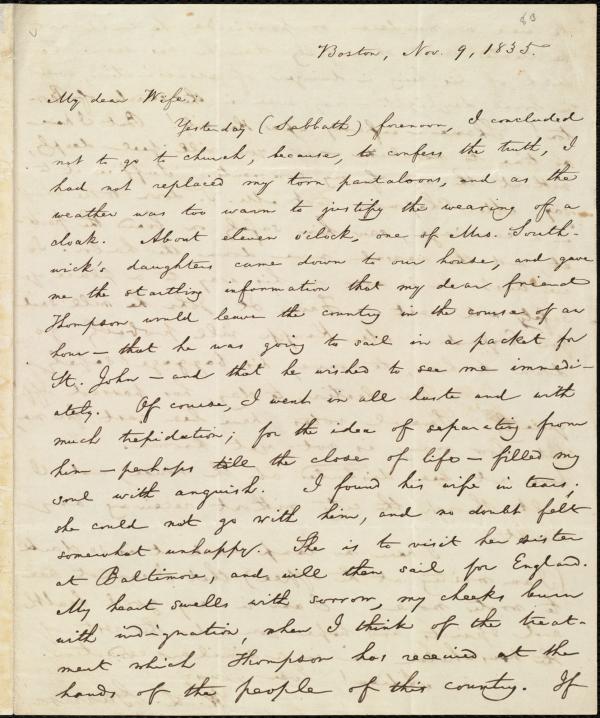 Boston, Nov. 9, 1835.
My dear Wife:
Yesterday (Sabbath) forenoon, I concluded
not to go to church, because, to confess the truth, I
had not replaced my torn pantaloons, and as the
weather was too warm to justify the wearing of a
cloak. About eleven o'clock, one of Mrs. South-
wick's daughters came down to our house, and gave
me the startling information that my dear friend
Thompson would leave the country in the course of an
hour — that he was going to sail in a packet for
St. John — and that he wished to see me immedi-
ately. Of course, I went in all haste and with
much trepidation; for the idea of separating from
him — perhaps till the close of life — filled my
soul with anguish. I found his wife in tears;
she could not go with him, and no doubt felt
somewhat unhappy. She is to visit her sister
at Baltimore, and will then sail for England.
My heart swells with sorrow, my cheeks burn
with indignation, when I think of the treat-
ment which Thompson has received at the
hands of the people of this country. If